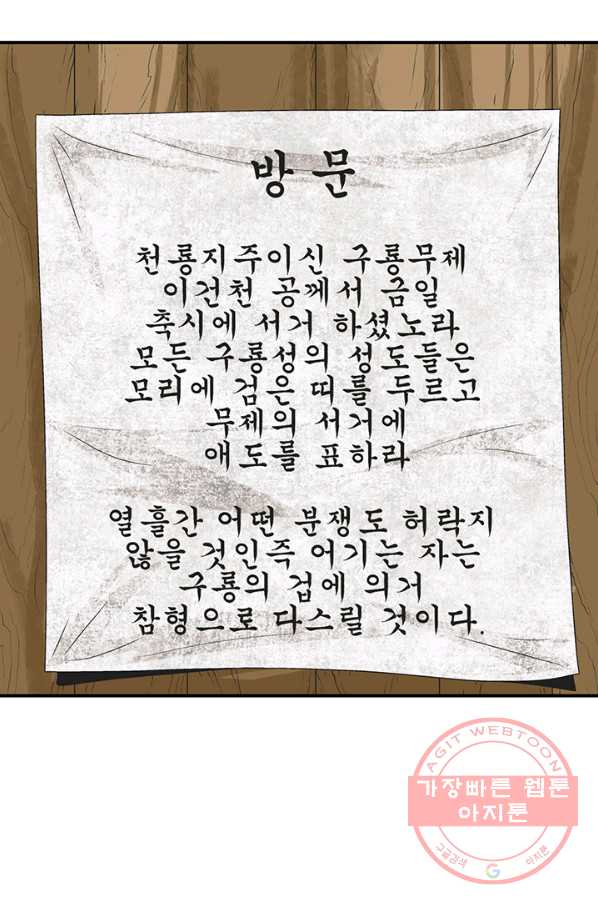 방문
천룡지주이신 구룡무제
이건천 공께서 금일
축시에 서거 하셨노라
모든 구룡성의 성도들은
모리에 검은 띠를 두르고
무제의 서거에
애도를 표하라
열흘간 어떤 분쟁도 허락지
않을 것인즉 어기는 자는
구룡의 겁에 의거
참형으로 다스릴 것이다.
AGIT WEBTOON
가장빠른 웹툰
아지툰
구글검색 G 아지툰